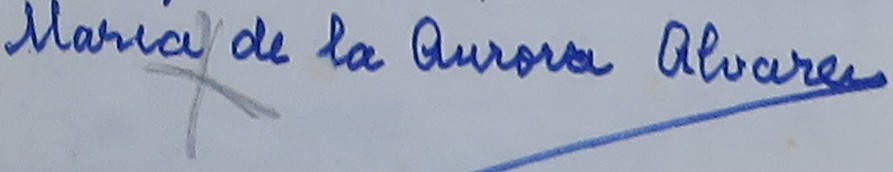 Maria de la Aurora Alvarez